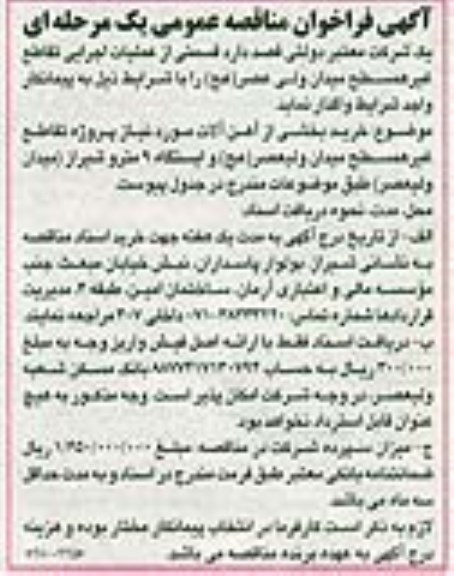 آگهی فراخوان مناقصه عمومی یک مرحله ای
یک شرکت معتبر دولتی قصد دارد قسمتی از عملیات اجرایی تقاطع
غیرهمسطح میدان ولی عصر(عج) را با شرایط ذیل به پیمانکار
واجد شرایط واگذار نماید
موضوع: خرید بخشی از آهن آلات مورد نیاز پروژه تقاطع
غیرهمسطح میدان ولیعصر(عج) و ایستگاه ۹ مترو شیراز (میدان
ولیعصر) طبق موضوعات مندرج در جدول پیوست
محل، مدت، نحوه دریافت اسناد:
الف- از تاریخ درج آگهی به مدت یک هفته جهت خرید اسناد مناقصه
به نشانی شیراز، بولوار پاسداران، نبش خیابان مبعث جنب
موسسه مالی و اعتباری آرمان، ساختمان امین، طبقه ۳، مدیریت
قراردادها شماره تماس: داخلی ۳۰۷ مراجعه نمایند
ب- دریافت اسناد فقط با ارائه اصل فیش واریز وجه به مبلغ
۳۰۰/۰۰۰ ریال به حساب بانک مسکن شعبه
ولیعصر، در وجه شرکت امکان پذیر است. وجه مذکور به هیچ
عنوان قابل استرداد نخواهد بود.
ج- میزان سپرده شرکت در مناقصه: مبلغ ریال
ضمانتنامه بانکی معتبر طبق فرمت مندرج در اسناد و به مدت حداقل
سه ماه می باشد.
لازم به ذکر است کارفرما در انتخاب پیمانکار مختار بوده و هزینه
درج آگهی به عهده برنده مناقصه می باشد.